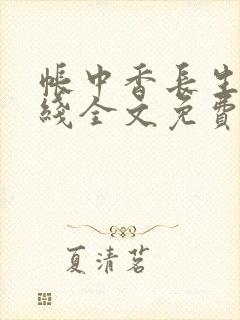 帳中香長生
綫全文免費
夏清茗